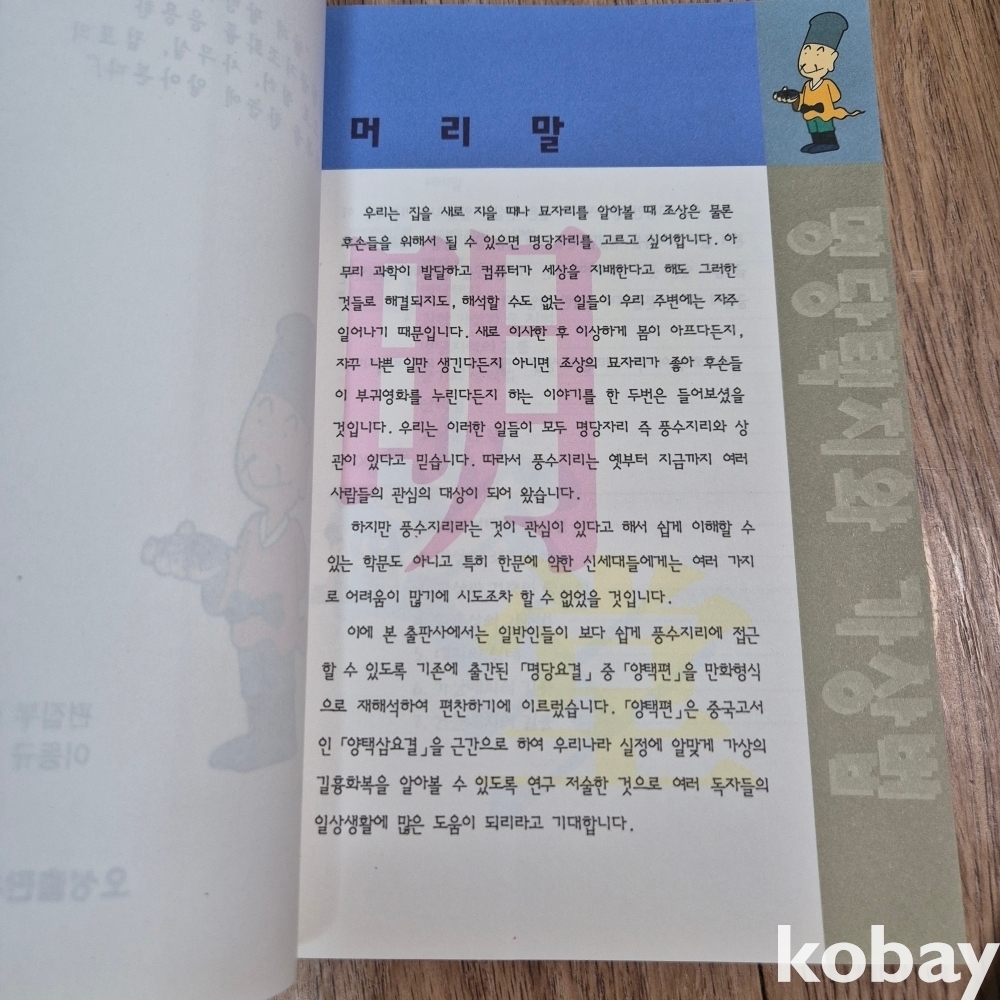 머 리 말
우리는 집을 새로 지을 때나 묘자리를 알아볼 때 조상은 물론
후손들을 위해서 될 수 있으면 명당자리를 고르고 싶어합니다. 아
무리 과학이 발달하고 컴퓨터가 세상을 지배한다고 해도 그러한
것들로 해결되지도, 해석할 수도 없는 일들이 우리 주변에는 자주
일어나기 때문입니다. 새로 이사한 후 이상하게 몸이 아프다든지,
자꾸 나쁜 일만 생긴다든지 아니면 조상의 묘자리가 좋아 후손들
이 부귀영화를 누린다든지 하는 이야기를 한 두번은 들어보셨을
것입니다. 우리는 이러한 일들이 모두 명당자리 즉 풍수지리와 상
관이 있다고 믿습니다. 따라서 풍수지리는 옛부터 지금까지 여러
사람들의 관심의 대상이 되어 왔습니다.
하지만 풍수지리라는 것이 관심이 있다고 해서 쉽게 이해할 수
있는 학문도 아니고 특히 한문에 약한 신세대들에게는 여러 가지
로 어려움이 많기에 시도조차 할 수 없었을 것입니다.
이에 본 출판사에서는 일반인들이 보다 쉽게 풍수지리에 접근
할 수 있도록 기존에 출간된 「명당요결」 중 「양택편」을 만화형식
으로 재해석하여 편찬하기에 이르렀습니다. 「양택편」은 중국고서
인 「양택삼요결」을 근간으로 하여 우리나라 실정에 알맞게 가상의
길흉화복을 알아볼 수 있도록 연구 저술한 것으로 여러 독자들의
일상생활에 많은 도움이 되리라고 기대합니다.
明
堂
명당택지와 가상법
편집부
이동규
오성출판
kobay